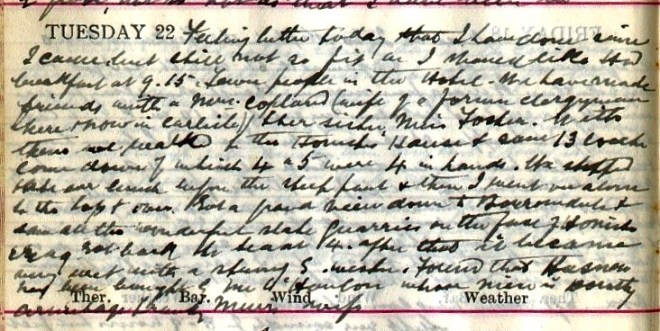 TUESDAY 22 Feeling better today than I have done since
I came but still not so fit as I should like. Had
breakfast at 9.15. Fewer people in the Hotel. We have made
friends with a Mrs. Copland (wife of a former clergyman
here & now in Carlisle) & her sister, Miss Foster. With
them we walked to the Honister House & saw 13 coaches
come down of which 4 or 5 were 4 in hands. We stopped
to eat our lunch before the steep part & then I went on alone
to the top & over. Got a grand view down to Borrowdale &
saw all the wonderful slate quarries on the face of Honister
Crag. Got back at 4. After that it became
very wet with a strong S. wester. Found that
had been bought by Mr. whose niece is Dorothy
Ther. Bar. Wind Weather